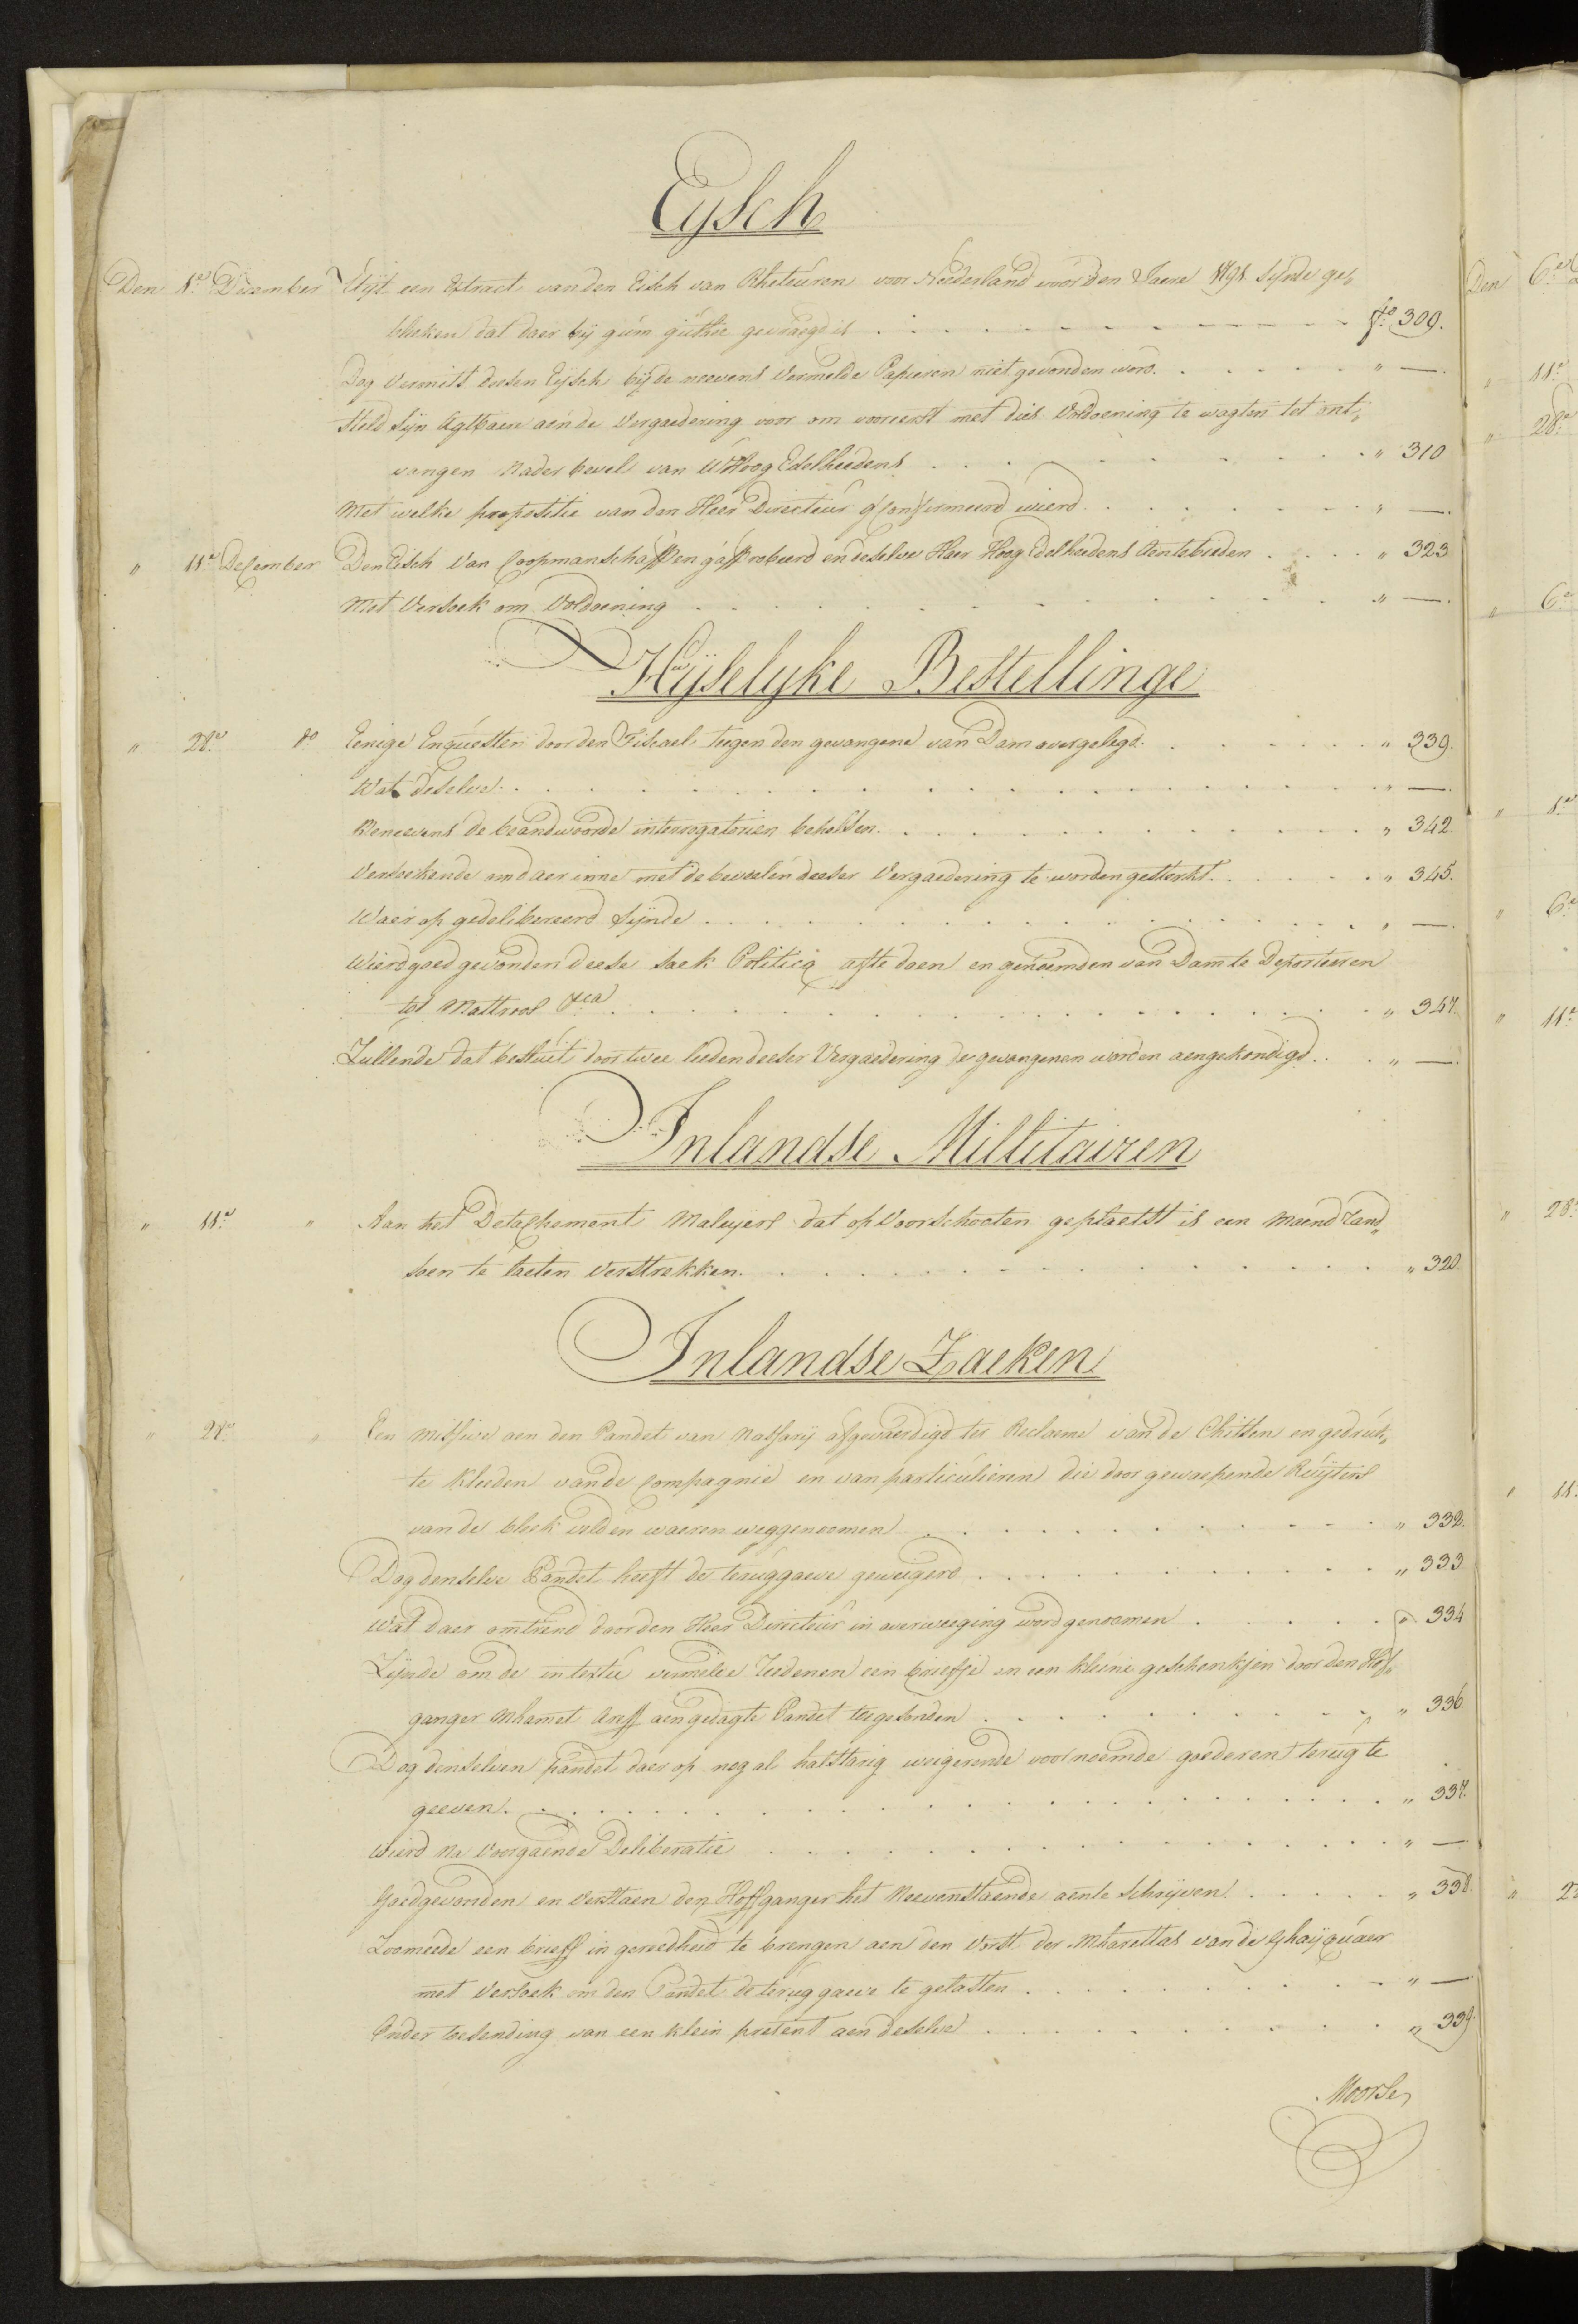 Eysch
Den 1.e December Uijt een Extract van den Eisch van Rheteuren voor Neederland voor den Jaere 1791 sijnde ge„
bleeken dat daer bij gum guthie gevraegd is . . . fo. 309.
Dog vermits desen Eysch bij de neevens vermelde Papieren niet gevonden word. . . . „ —.
Steld sijn Agtbaere aen de Vergaedering voor om voor eerst met dies voldoening te wagten tot ont„
vangen nader bevel van UHoog Edelheedens . . . „ 310
Met welke propositie van den Heer Directeur geconfirmeerd wierd. . . . „ —.
„ 11.e December Den Eisch van Coopmanschappen gapprobeerd en deselve Haer Hoog Edelheedens Aentebieden . . . „ 323
Met Versoek om Voldoening . . . „ —.
Huijselyke Bestellinge
„ 28.e do. Eenige Enquesten door den Fiscael teegen den gevangene van Dam overgelegd. . . . „ 339.
Wat deselve. . . . „ —.
Beneevens de beandwoorde interrogatorien behelsen. . . . „ 342.
Versoekende omdaer inne met de beveelen deeser Vergaedering te worden gesterkt. . . . „ 345.
Waer op gedelibereerd sijnde . . . „ —.
Wierd goed gevonden deese saek Politicq afte doen en genoemden van Dam te Deporteeren
tot Mattroos &ca . . . „ 347.
Zullende dat besluit door twee leeden deeser Vergaedering de gevangenen worden aengekondigd. . . „ —.
Inlandse Millitairen
„ 11.e „ Aan het Detachement Maleyers dat op Voorschooten geplaetst is een maend Rand„
soen te laeten verstrekken. . . . „ 320.
Inlandse Zaeken
„ 28.e „ Een missive aen den Pandet van Nassarij afgevaerdigd ter Reclaeme van de Chitsen en gedruk„
te kleeden van de Compagnie en van particulieren die door gewaepende Ruijters
van de bleek velden waeren weggenoomen . . . „ 332.
Dog denselve Pandet heeft de teruggaeve geweigerd . . . „ 333
Wat daer omtrend door den Heer Directeur in overweeging word genoomen . . . „ 334
Zijnde om de in textu vermelde Reedenen een briefje en een kleine geschenkjen door den Hof„
ganger Mhamet Areff aen gedagte Pandet toegesonden . . . „ 336
Dog denselven pandet daer op nog al halstarig weigerende voornoemde goederen terug te
geeven. . . . „ 337.
Wierd na Voorgaende Deliberatie . . . „ —.
Goedgevonden en Verstaen den Hoffganger het Neevenstaende aente Schrijven . . . „ 338.
Zoomeede een brieff in gereedheid te brengen aen den Vorst der Mharettas van de Ghaijquaer
met versoek om den Pandet de teruggaeve te gelasten . . . „ —.
Onder toesending van een klein present aen deselve . . . „ 339.
Moorse
Den 6.e
„ 11.e
„ 28.e
„ 6.e
„ 1.e
„ 6.e
„ 11.e
„ 28.e
„ 11.